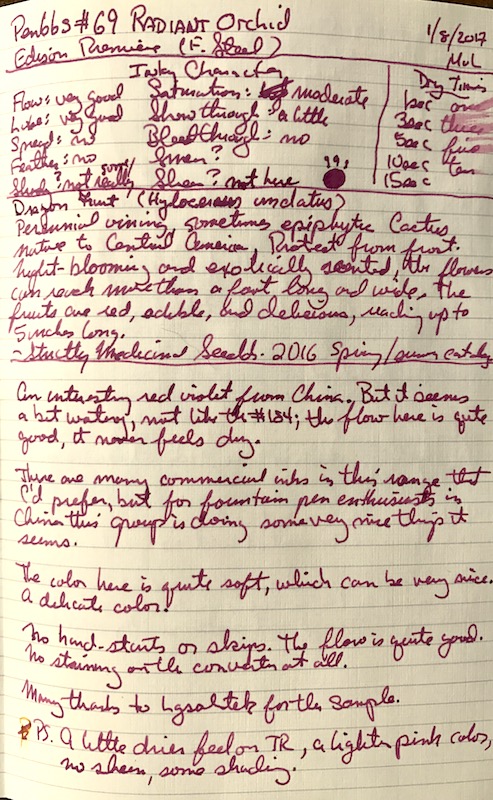 Penbbs #69 RADIANT Orchid
1/8/2017
Edison Premiere (F. Steel)
MvL
Inky Character
Dry Times
Flow: very good
Saturation: moderate
1 sec one
Lube: very good
Show through: a little
3 sec three
Spread: no
Bleedthrough: no
5 sec five
Feather: no
Smear?
10 sec ten
Shade? not really some/
Sheen? not here
15 sec
Dragon Fruit (Hylocereus undatus)
Perennial vining, sometimes epiphytic Cactus
native to Central America, Protect from frost.
Night-blooming and exotically scented, the flowers
can reach more than a foot long and wide. The
fruits are red, edible, and delicious, reaching up to
5 inches long.
- Strictly Medicinal Seeds. 2016 Spring/summer catalog
An interesting red violet from China. But it seems
a bit watery, not like the #184; the flow here is quite
good, it never feels dry.
There are many commercial inks in this range that
I'd prefer, but for fountain pen enthusiasts in
China this group is doing some very nice things it
seems.
The color here is quite soft, which can be very nice.
A delicate color.
No hard-starts or skips. The flow is quite good.
No staining on the converter at all.
Many thanks to lgsoltek for the sample.
PS. A little drier feel on TR, a lighter pink color,
no sheen, some shading.